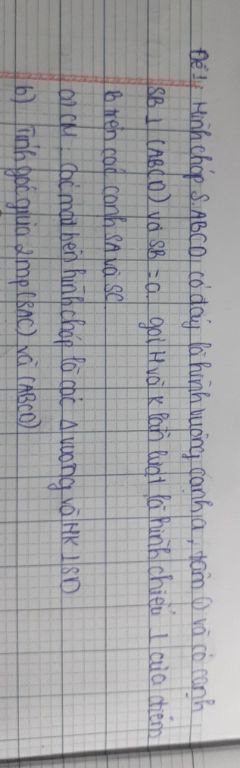 Đề 1: Hình chóp S.ABCD có đáy là hình vuông cạnh a, tâm O và có cạnh
SB ⊥ (ABCD) và SB = a. gọi H và K lần lượt là hình chiếu ⊥ của điểm
B trên các cạnh SA và SC.
a) CM: Các mặt bên hình chóp là các Δ vuông và HK ⊥ SD
b) Tính góc giữa 2 mp (SAC) và (ABCD)